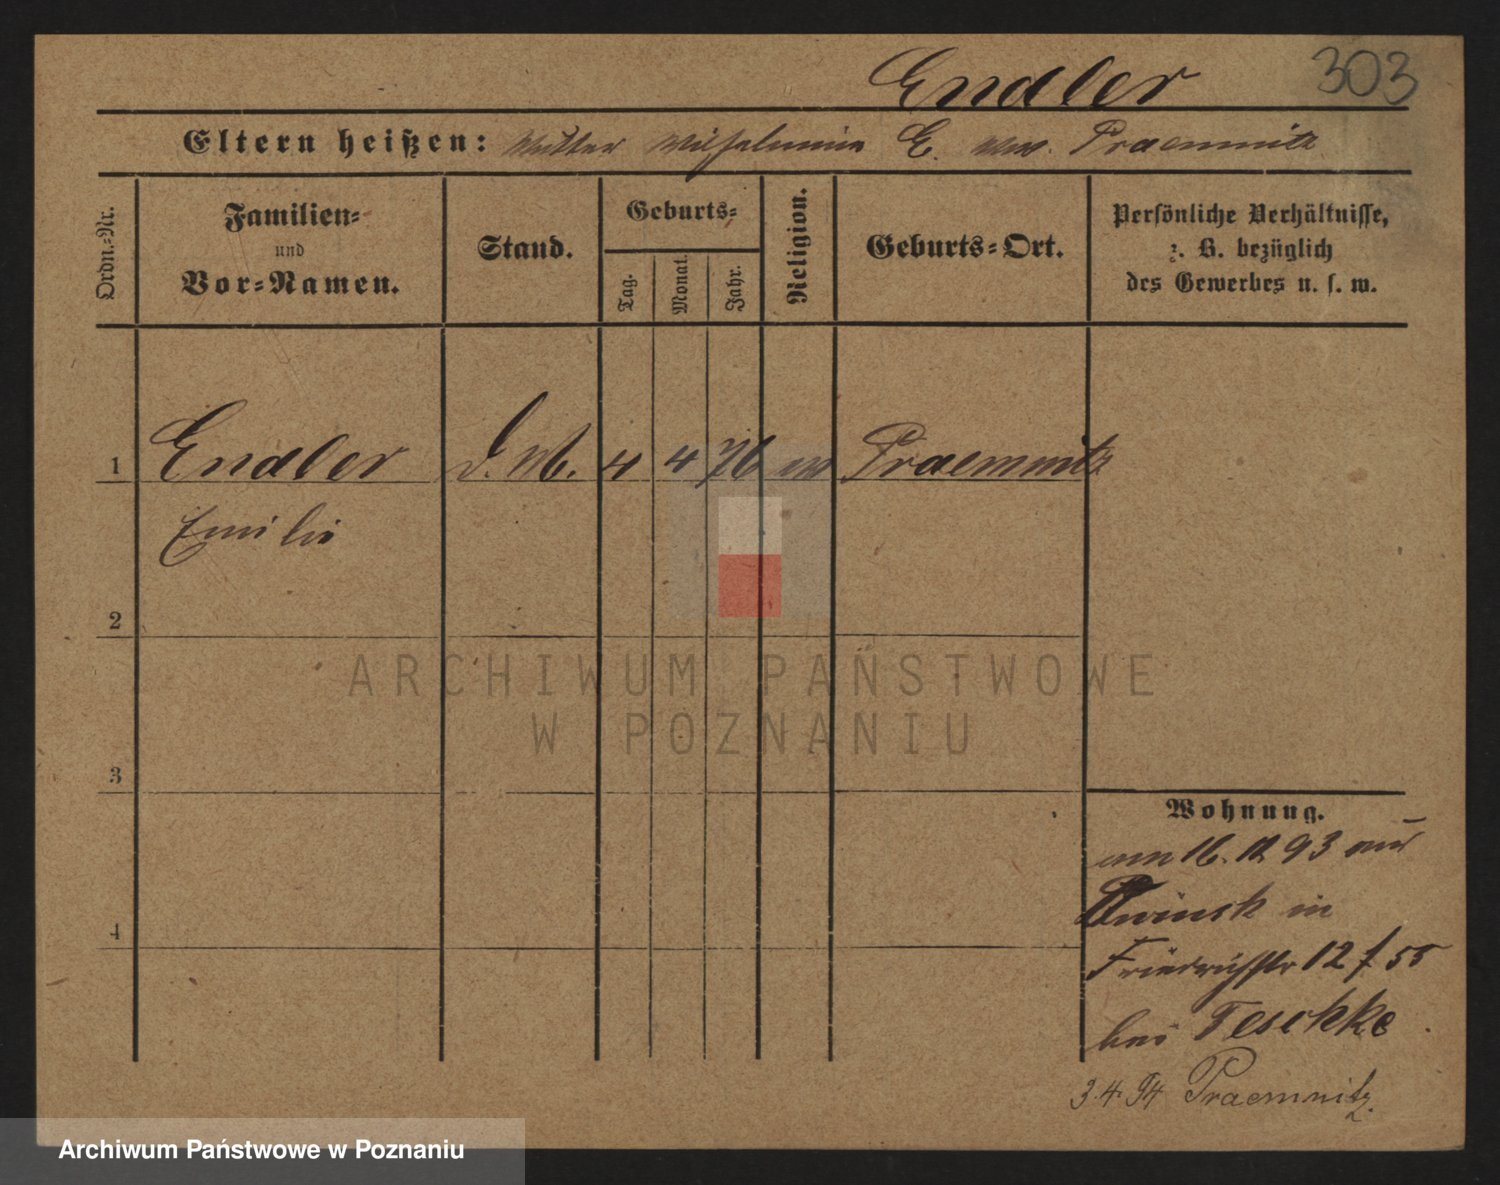 Endler 303
Eltern heißen: Mutter Wilhelmine E. Praemnitz
Ordn.=Nr.
Familien=
und
Vor=Namen.
Stand.
Geburts=
Tag.
Monat.
Jahr.
Religion.
Geburts=Ort.
Persönliche Verhältnisse,
z. B. bezüglich
des Gewerbes u. s. w.
1 Endler D. M. 4 4 76 ev Praemnitz
Emilie
2
ARCHIWUM PAŃSTWOWE
W POZNANIU
3
Wohnung.
am 16. 12 93 aus
in
4
Friedrichstr 12 f 55
bei Teschke
3.4.94 Praemnitz.
Archiwum Państwowe w Poznaniu